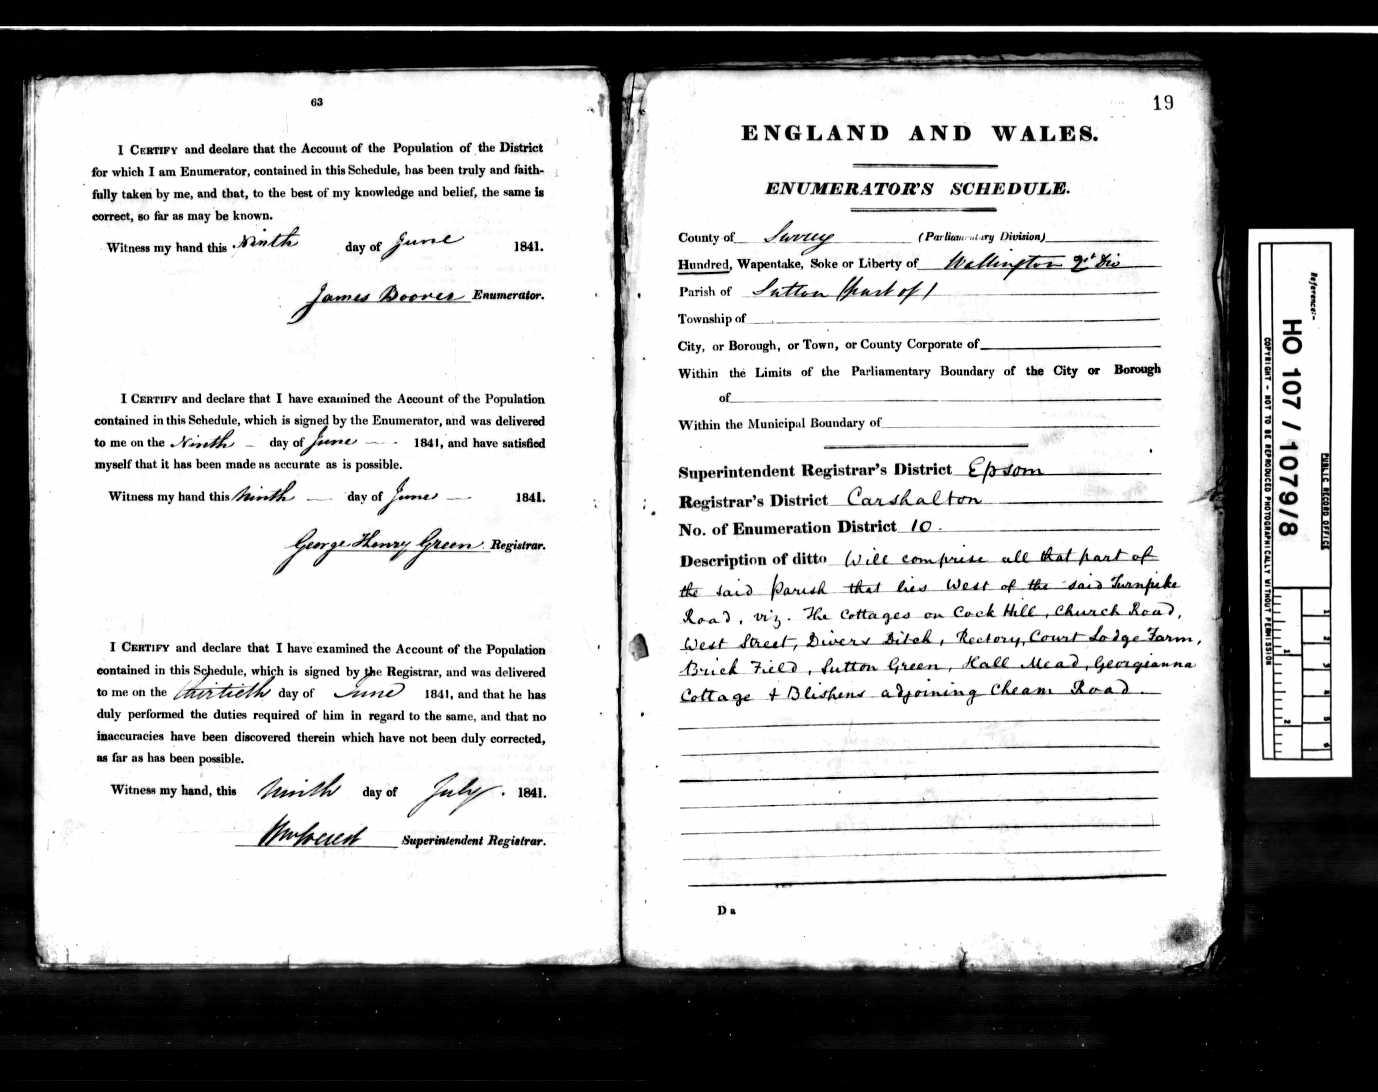 63
I CERTIFY and declare that the Account of the Population of the District
for which I am Enumerator, contained in this Schedule, has been truly and faith-
fully taken by me, and that, to the best of my knowledge and belief, the same is
correct, so far as may be known.
Witness my hand this Ninth day of June 1841.
James Enumerator.
I CERTIFY and declare that I have examined the Account of the Population
contained in this Schedule, which is signed by the Enumerator, and was delivered
to me on the Ninth day of June 1841, and have satisfied
myself that it has been made as accurate as is possible.
Witness my hand this Ninth day of June 1841.
George Henry Green Registrar.
I CERTIFY and declare that I have examined the Account of the Population
contained in this Schedule, which is signed by the Registrar, and was delivered
to me on the thirtieth day of June 1841, and that he has
duly performed the duties required of him in regard to the same, and that no
inaccuracies have been discovered therein which have not been duly corrected,
as far as has been possible.
Witness my hand, this Ninth day of July. 1841.
Superintendent Registrar.
19
ENGLAND AND WALES.
ENUMERATOR'S SCHEDULE.
County of Surrey (Parliamentary Division)
Hundred, Wapentake, Soke or Liberty of Wallington 2d Div
Parish of Sutton (part of)
Township of
City, or Borough, or Town, or County Corporate of
Within the Limits of the Parliamentary Boundary of the City or Borough
of
Within the Municipal Boundary of
Superintendent Registrar's District Epsom
Registrar's District Carshalton
No. of Enumeration District 10.
Description of ditto Will comprise all that part of
the said Parish that lies West of the said Turnpike
Road, viz. The Cottages on Cock Hill, Church Road,
West Street, Divers Ditch, Rectory, Court Lodge Farm,
Brick Field, Sutton Green, Hall Mead, Georgianna
Cottage & Blishens adjoining Cheam Road.
D a
Reference:-
HO 107 / 1079/8
PUBLIC RECORD OFFICE
COPYRIGHT - NOT TO BE REPRODUCED PHOTOGRAPHICALLY WITHOUT PERMISSION
1
2
3
4
5
6
1
2